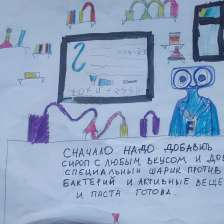 СНАЧАЛО НАДО ДОБАВИТЬ
СИРОП С ЛЮБЫМ ВКУСОМ И ДОБ
СПЕЦИАЛЬНЫЙ ШАРИК ПРОТИВ
БАКТЕРИЙ И АКТИВНЫЕ ВЕЩЕ
И ПАСТА ГОТОВА.